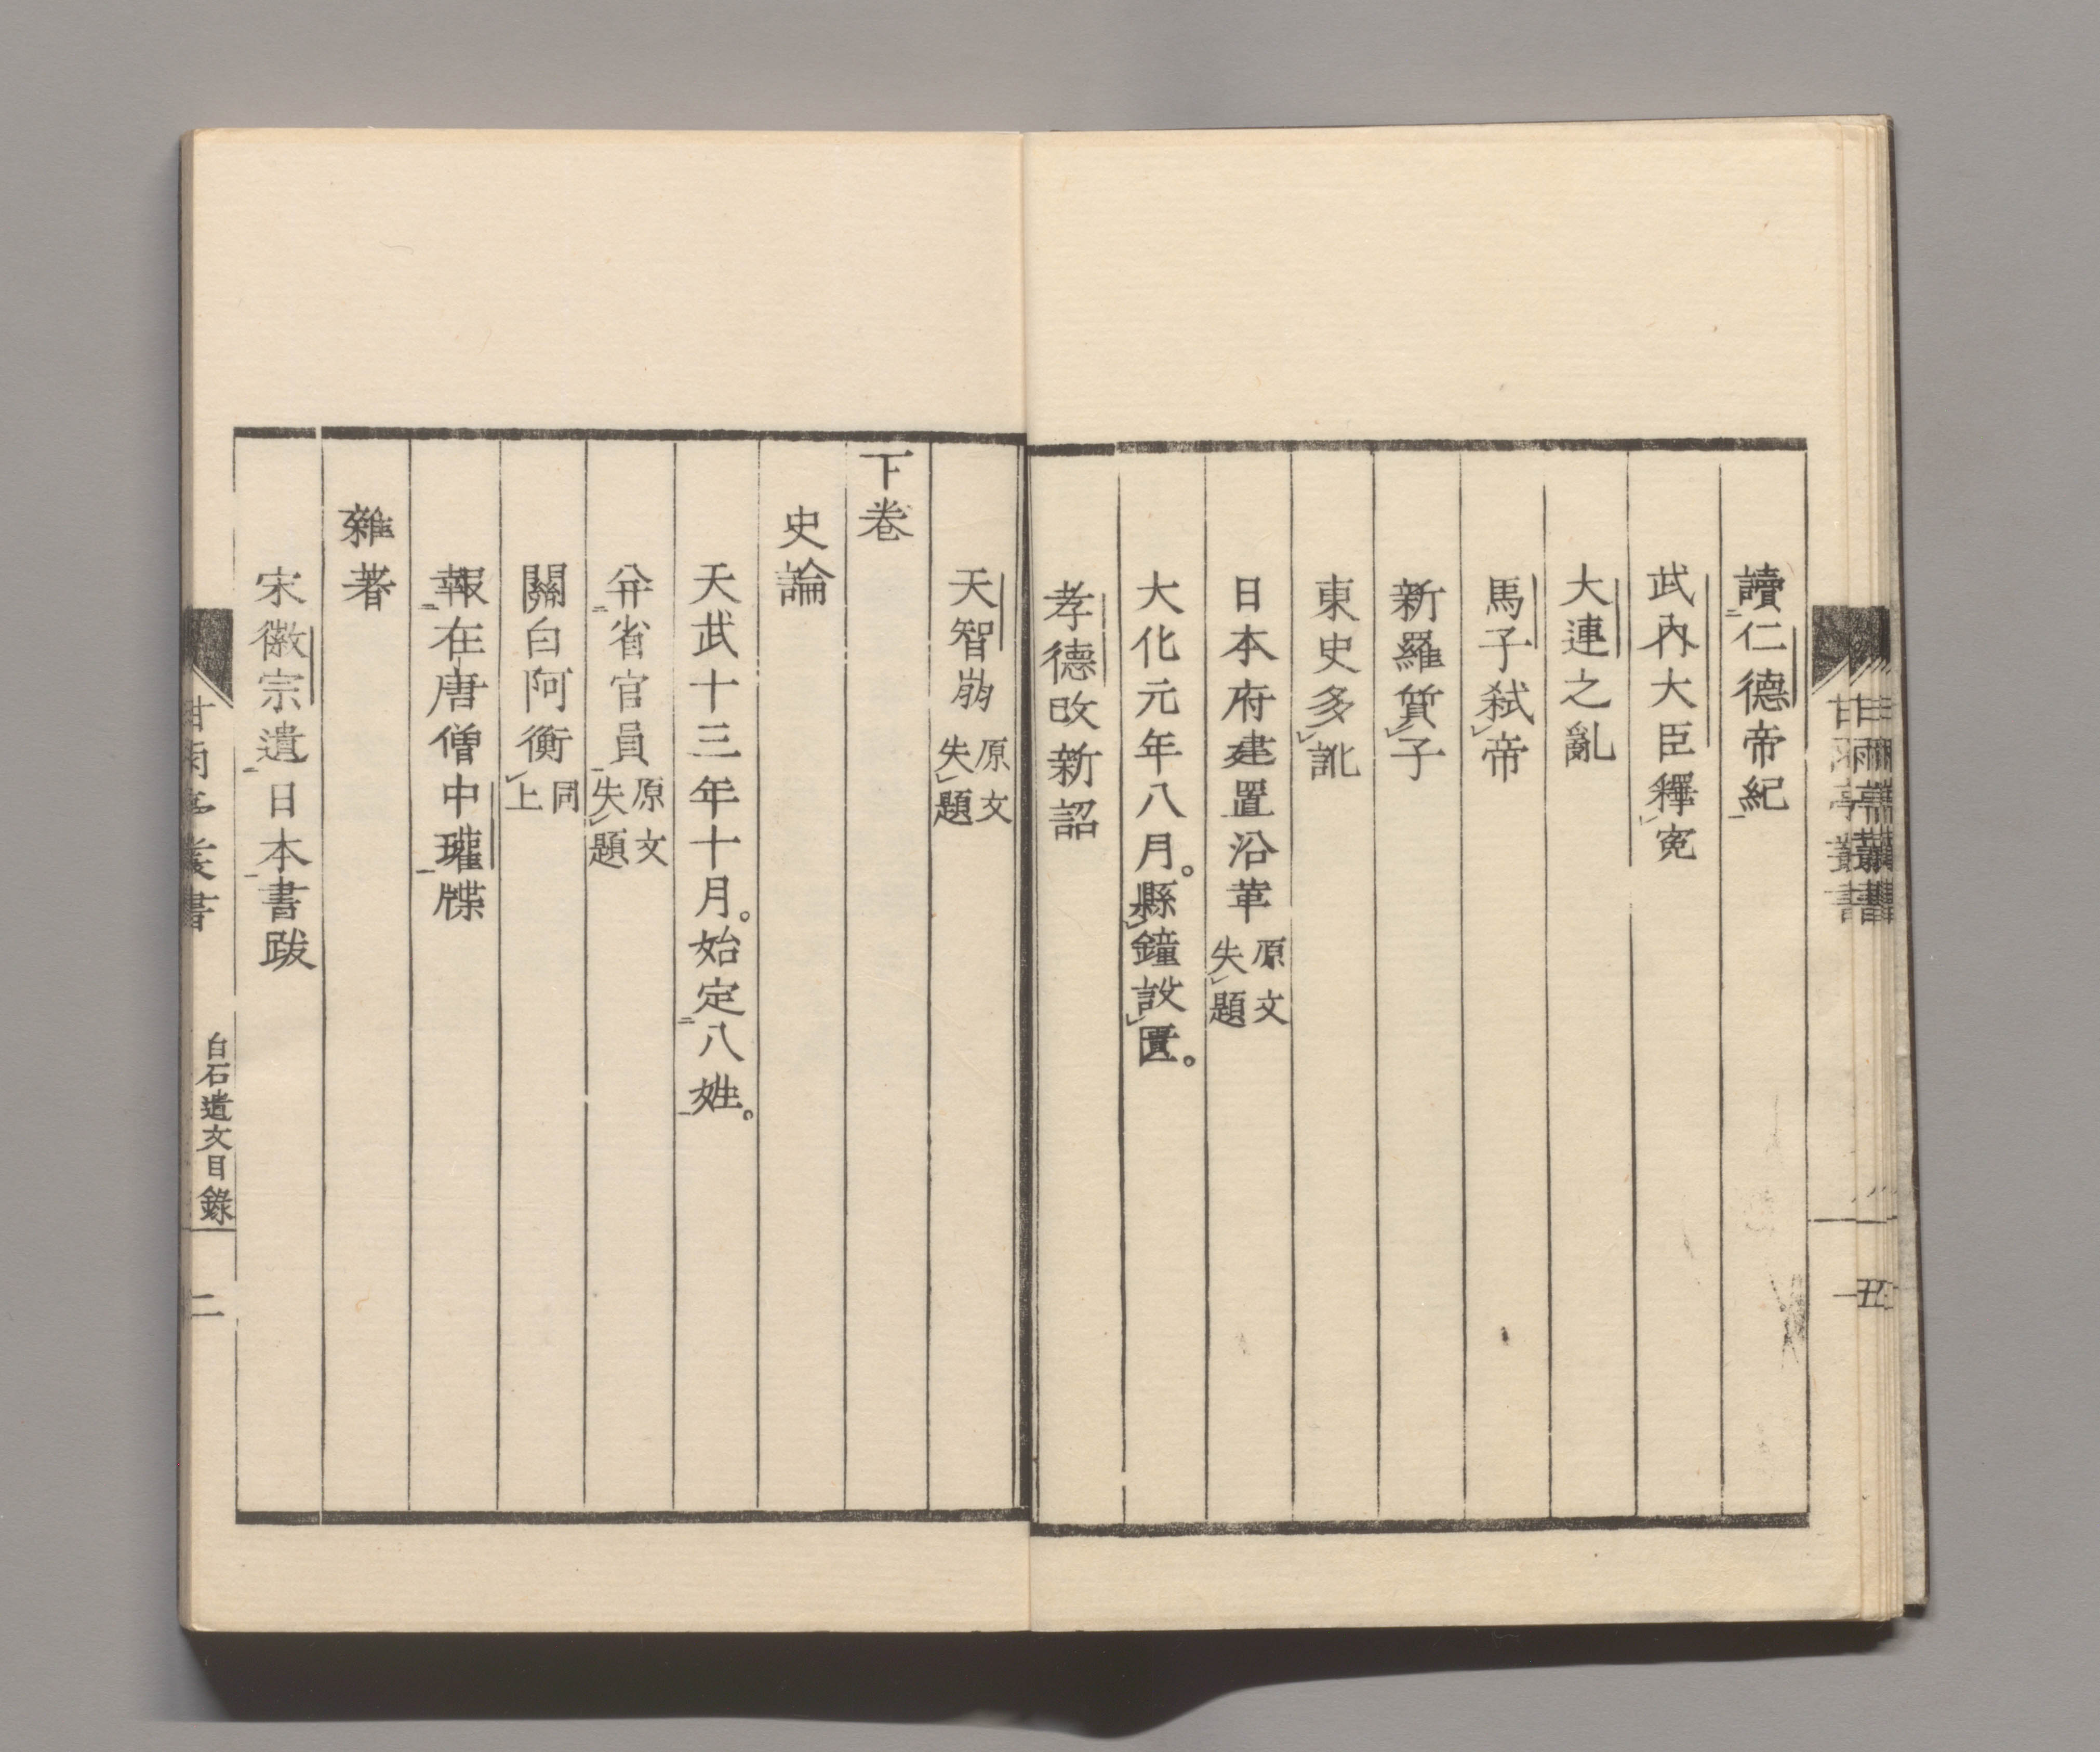 讀仁德帝紀
武內大臣釋寃
大連之亂
馬子弒帝
新羅質子
東史多訛
日本府建置沿革 原文失題
大化元年八月。縣鐘設匱。
孝德改新詔
天智崩 原文失題
下卷
史論
天武十三年十月。始定八姓。
幷省官員 原文失題
關白阿衡 同上
報在唐僧中瓘牒
雜著
宋徽宗遺日本書跋
甘雨亭叢書
白石遺文目錄
二